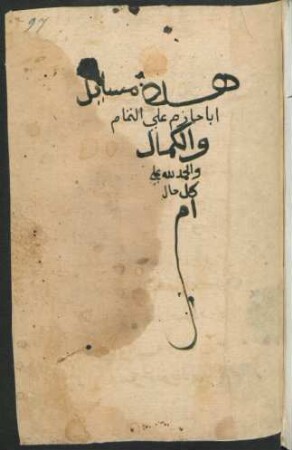 97
هذه مسائل
ابا حازم علي التمام
والكمال
والحمد لله علي
كل حال
ام